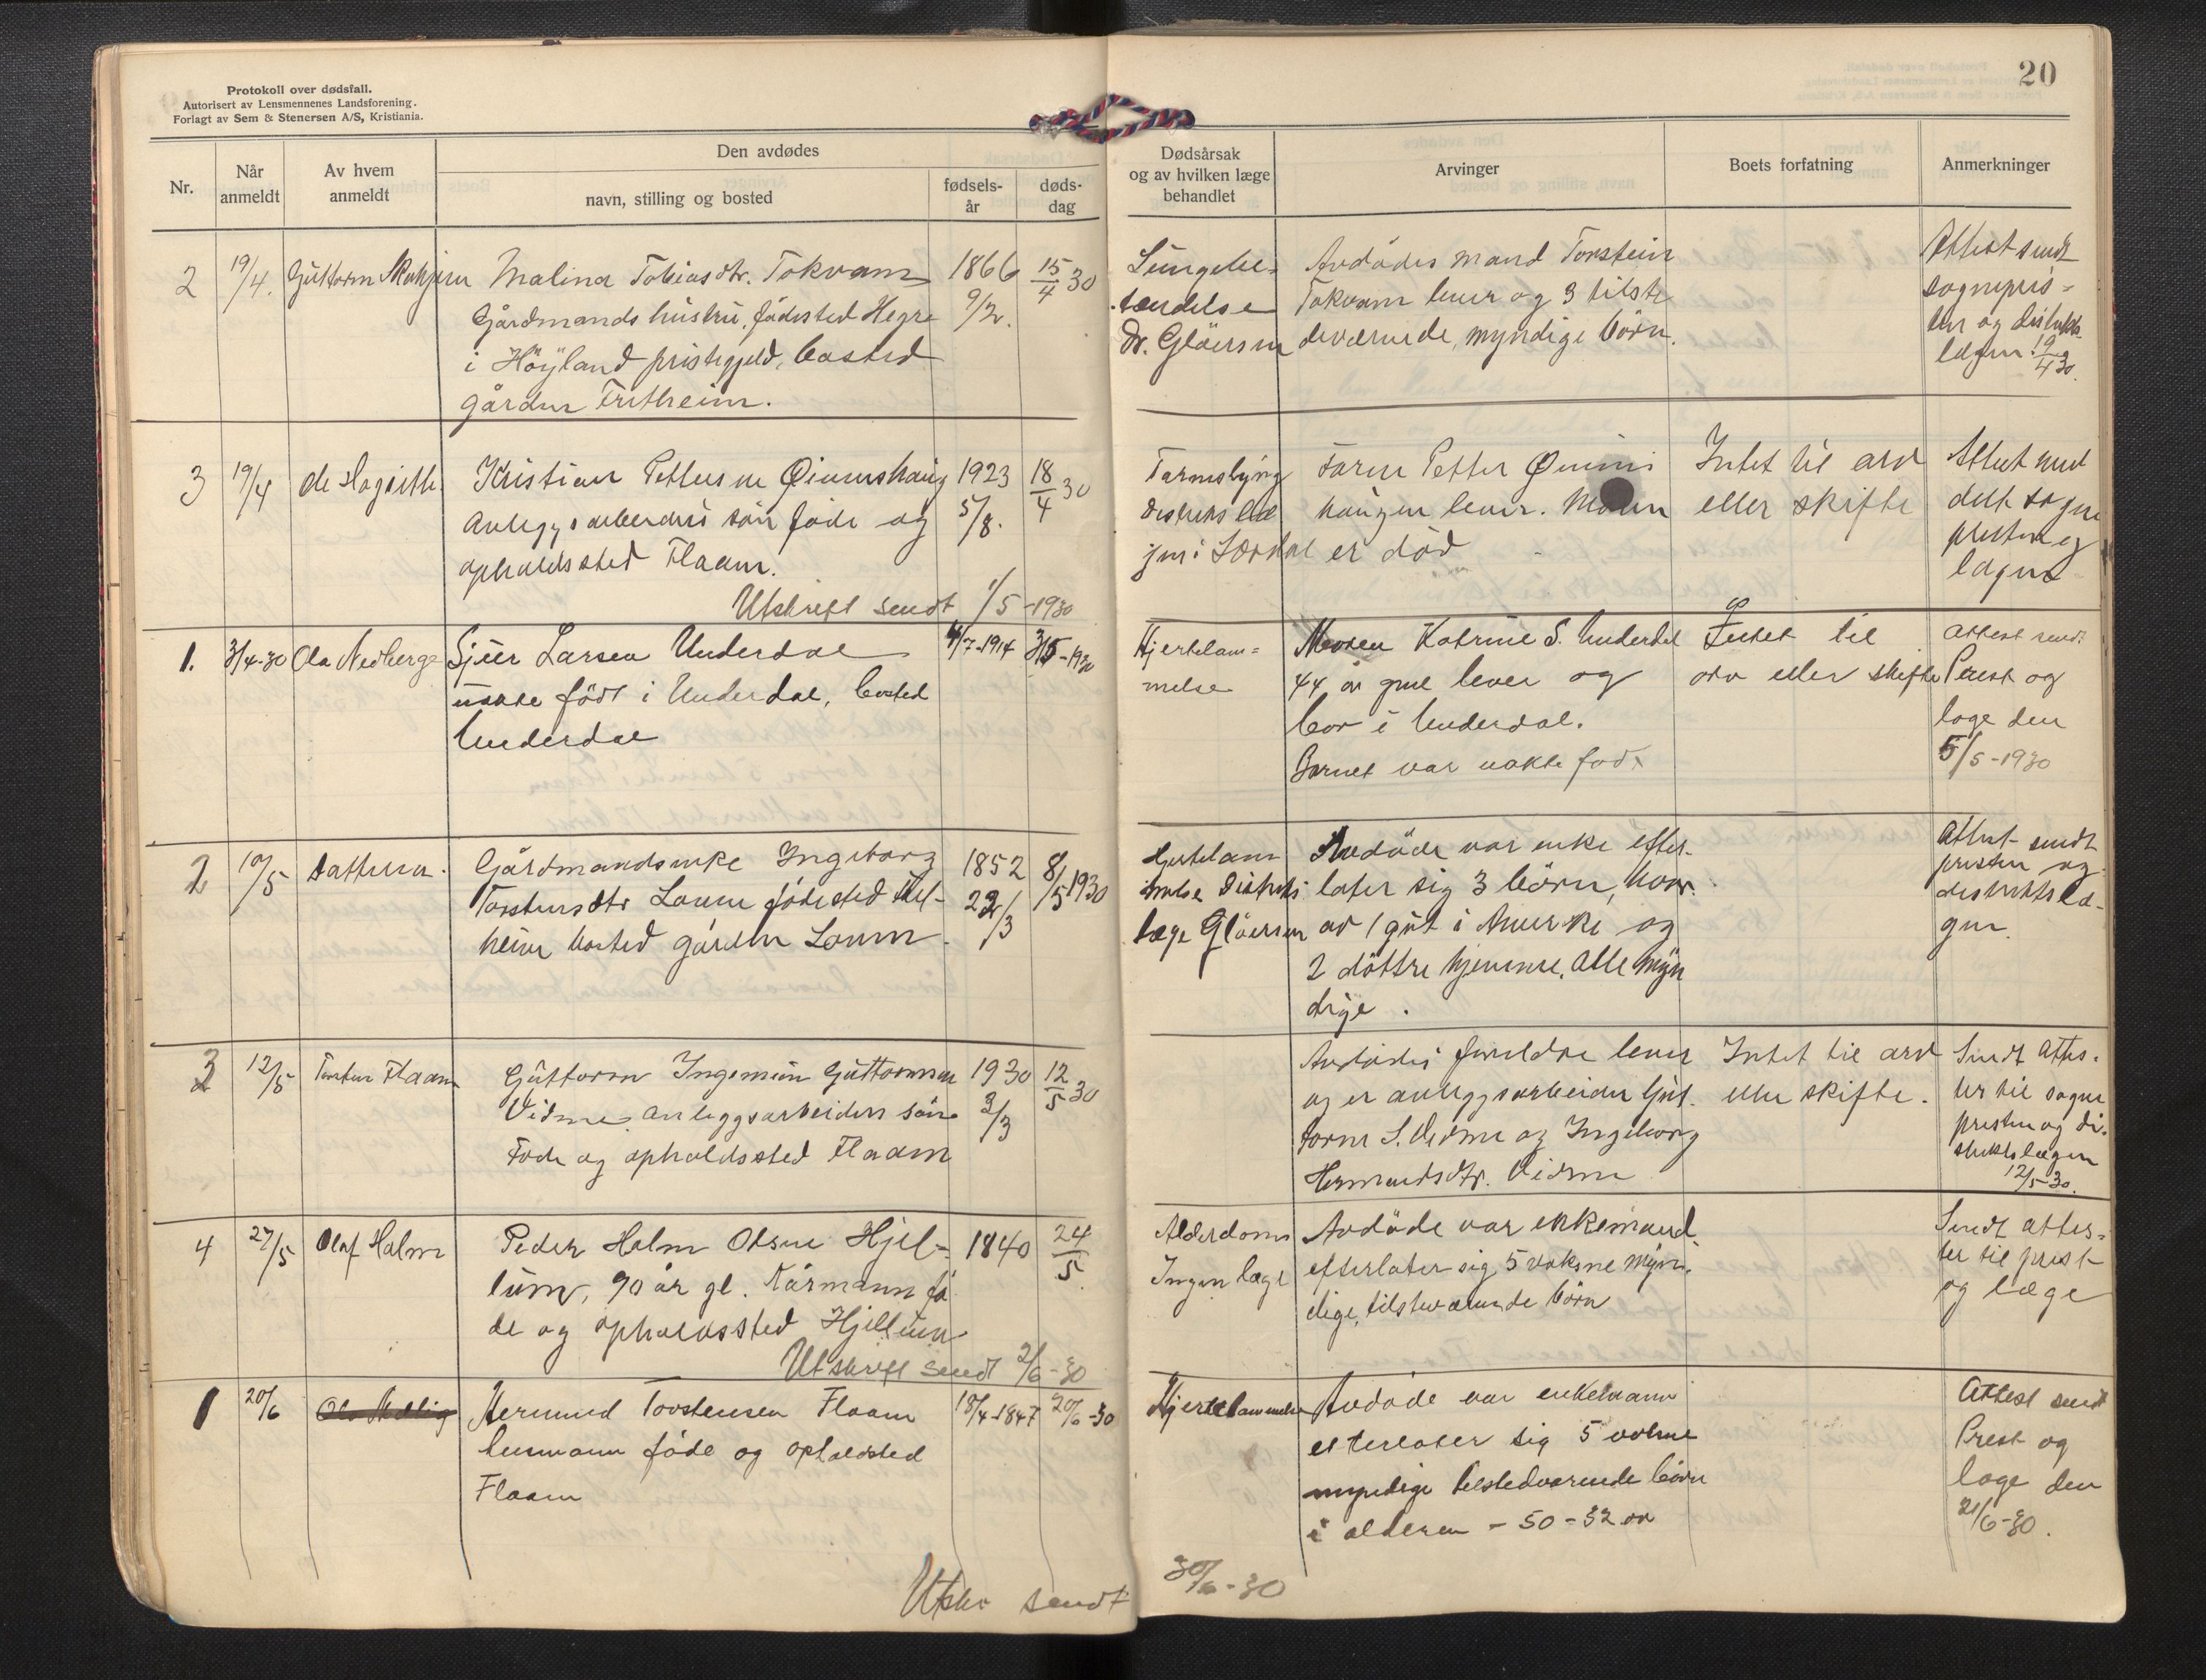 Protokoll over dødsfall.
Autorisert av Lensmennenes Landsforening.
Forlagt av Sem & Stenersen A/S, Kristiania.
20
Nr.
Når
anmeldt
Av hvem
anmeldt
Den avdødes
navn, stilling og bosted
fødsels-
år
døds-
dag
Dødsårsak
og av hvilken læge
behandlet
Arvinger
Boets forfatning
Anmerkninger
2
19/4.
Guttorm
Malina Tobiasdtr. Tokvam
Gårdmands hustru, fødested Hegre
i Höyland prestegjeld, bosted
gården Fretheim.
1866
9/2.
15/4 30
Lungebe-
tændelse
Dr. Gløersen
Avdødes mand Torstein
Tokvam lever og 3 tilste
deværende, myndige børn.
Attest sendt
sogneprs-
ten og distrikts
lægen 19/4 30.
3
19/4
Kristian Pettersen
Anleggsarbeiders søn føde og
opholdssted Flaam.
Utskrift sendt 1/5-1930
1923
5/8.
18/4 30
Tarmslyng
distriktslæ
gen i Lærdal
Faren Petter
haugen lever. Moren
er død
Intet til arv
eller skifte
Attest med
delt sogne
presten og
lægen
1.
3/4-30
Ola Nedberge
Sjur Larsen Underdal
ukte født i Underdal, bosted
Underdal
4/7-1914
3/5-1930
Hjertelam-
melse
Moren Katrine S. Underdal
44 år gml lever og
bor i Underdal.
Barnet var uekte født
Intet til
arv eller skifte
Attest sendt
Prest og
læge den
5/5-1930
2
10/5
Datteren.
Gårdmandsenke Ingeborg
Torstensdtr Loven fødested
heim bosted gården Loven.
1852
22/3
8/5 1930
Hjertelam
melse Distrikts
læge Gløersen
Avdøde var enke efter-
later sig 3 børn, hvor.
av 1 gut i Amerika og
2 døttre hjemme. Alle myn
dige.
Attest sendt
presten og
distriktslæ-
gen.
3
12/5
Torsten Flaam
Guttorm Ingemun Guttormsen
Vidme, anleggsarbeiders søn
Føde og opholdssted Flaam
1930
3/3
12/5 30
Avdødes foreldre lever
og er anleggsarbeider Gut.
torm S. Vidme og Ingeborg
Hermundsdtr. Vidme
Intet til arv
eller skifte.
Sendt attes-
ter til sogne
presten og di.
striktslægen
12/5-30.
4
27/5
Olaf Holm
Peder Holm Olsen Hjel-
lum, 90 år gl. Kårmann fø
de og opholdssted Hjellum
Utskrift sendt 2/6-30
1840
24/5
Alderdom
Ingen læge
Avdøde var enkemand
efterlater sig 5 voksne myn.
dige, tilstedværende børn
Sendt attes-
ter til prest
og læge
1
20/6
Hermund Torstensen Flaam
husmann føde og opholdsted
Flaam
18/4-1847
20/6-30
Hjertelammelse
Avdøde var enkemann
etterlater sig 5 voksne
myndige tilstedværende børn
i alderen - 50 - 32 år
Attest sendt
Prest og
læge den
21/6-30.
Utskr sendt
30/6-30